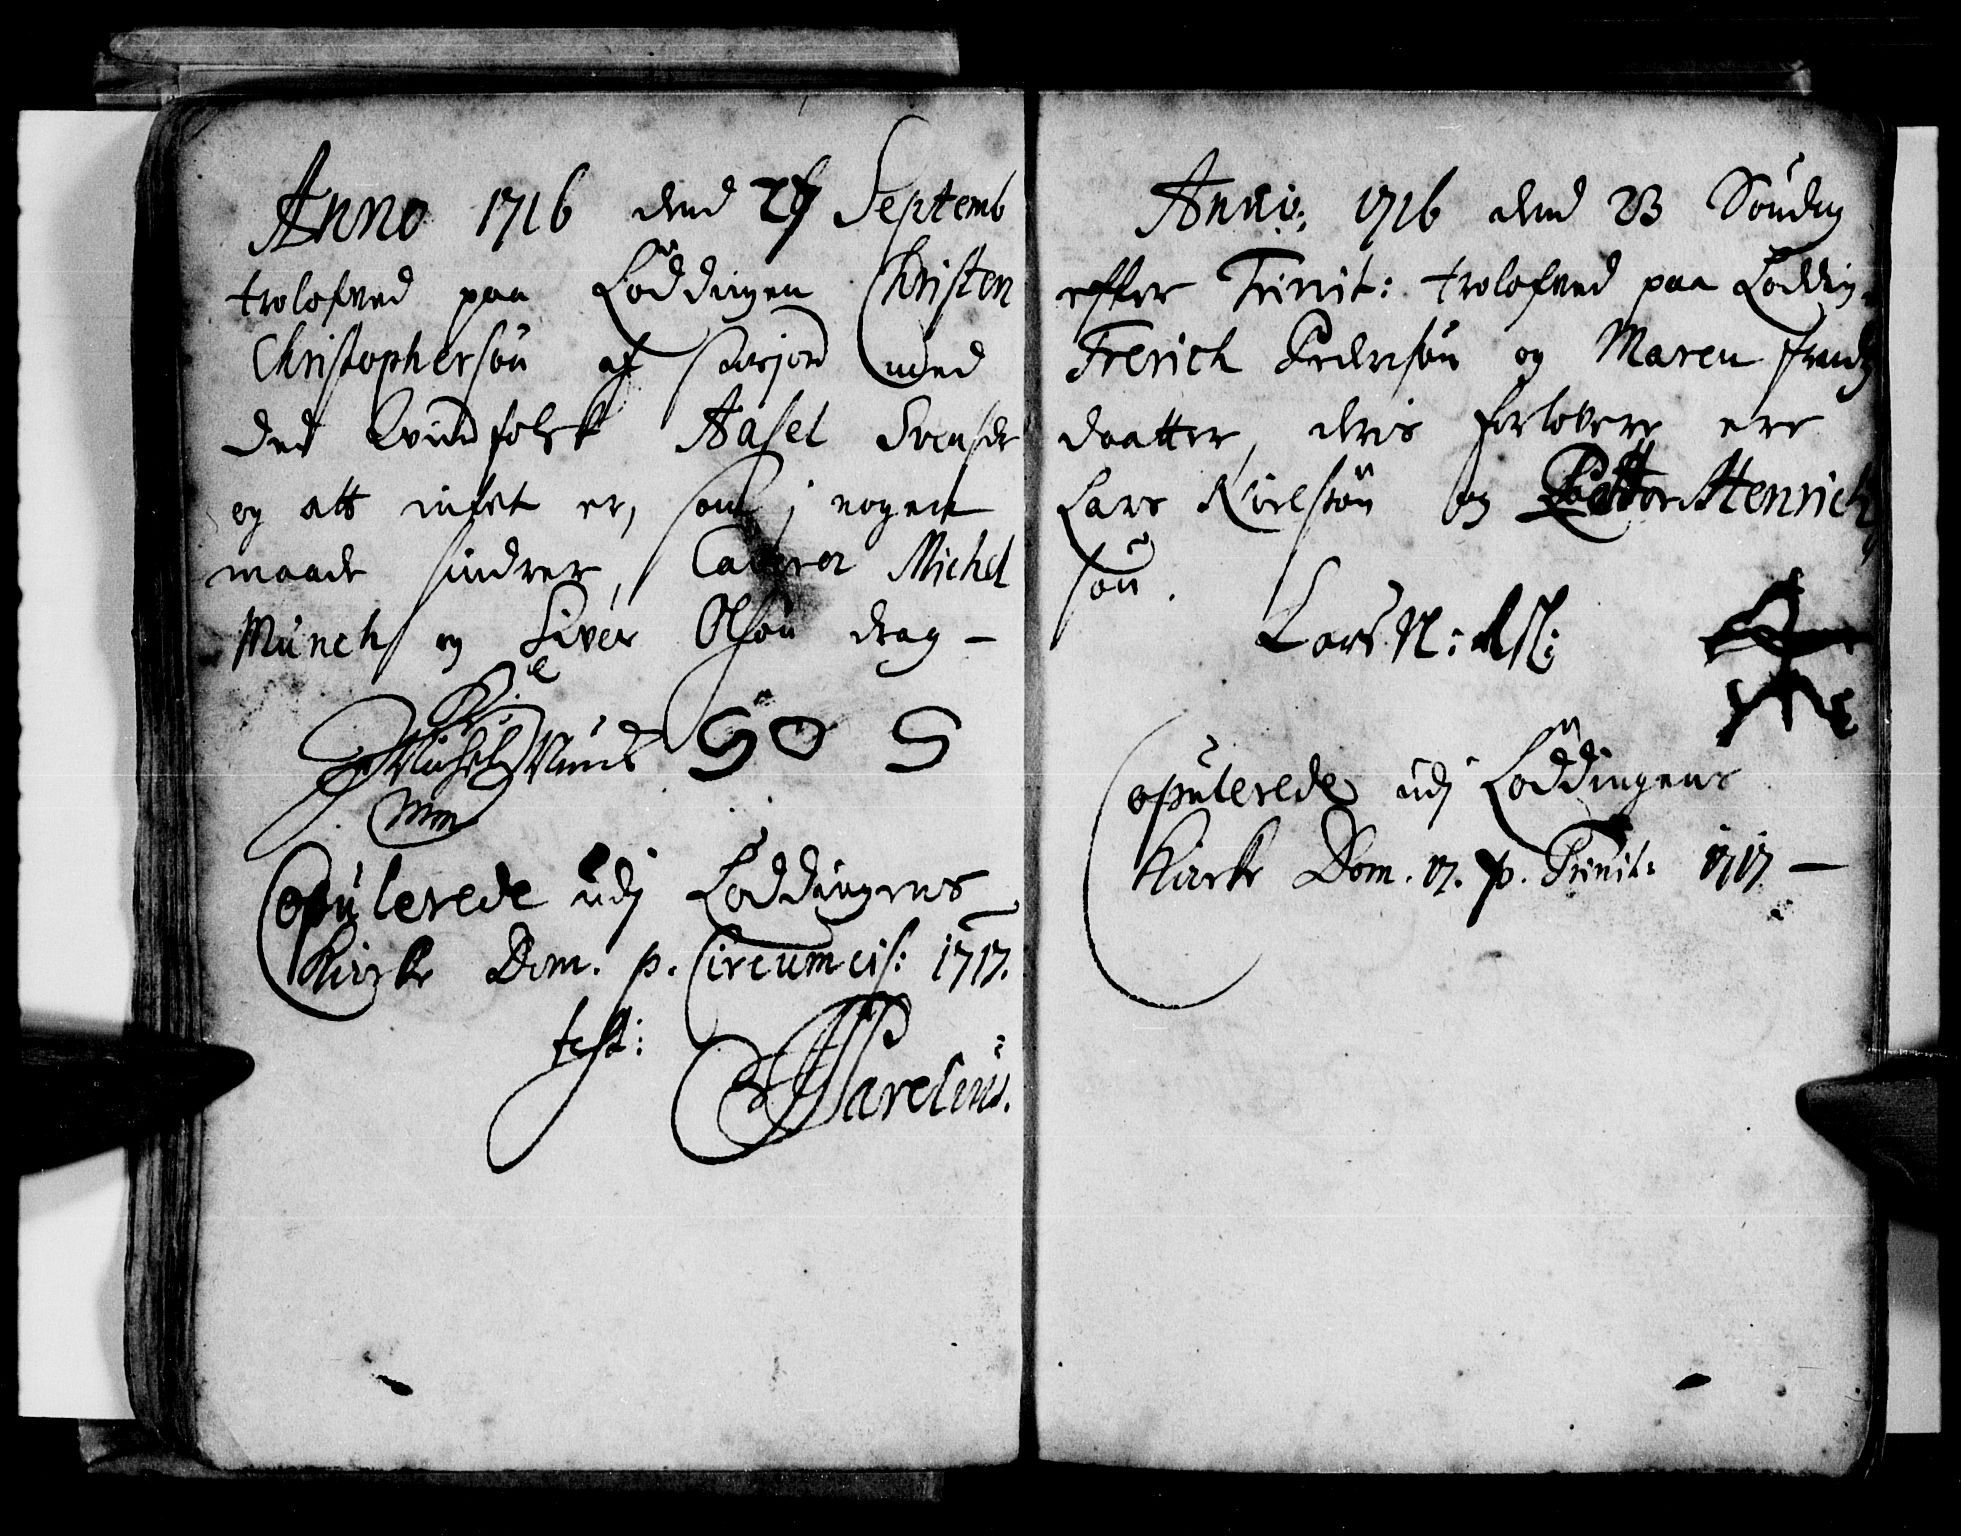 Anno 1716 dend 27 Septemb
trolofved paa Løddingen Christen
Christophersøn af Storjord med
ded Qvindfolck Aasel Svensdr
og att intet er, som j nogen
maade hindrer, Caverer Michel
Münch og Siver Olsøn drag -
Michel Münck SO S
mm
Copulerede udj Loddingens
Kircke Dom. p. Circumcis: 1717.
test:
Anno 1716 dend 23 Søndag
effter Trinit: trolofved paa Lodding
Frerich Pedersøn og Maren Frantz
daatter, deris forlovere ere
Lars Nielsøn og Petter Henrich
søn.
Lars N: S:
Copulerede udj Løddingens
Kircke Dom. 17. p. Trinit: 1717 -